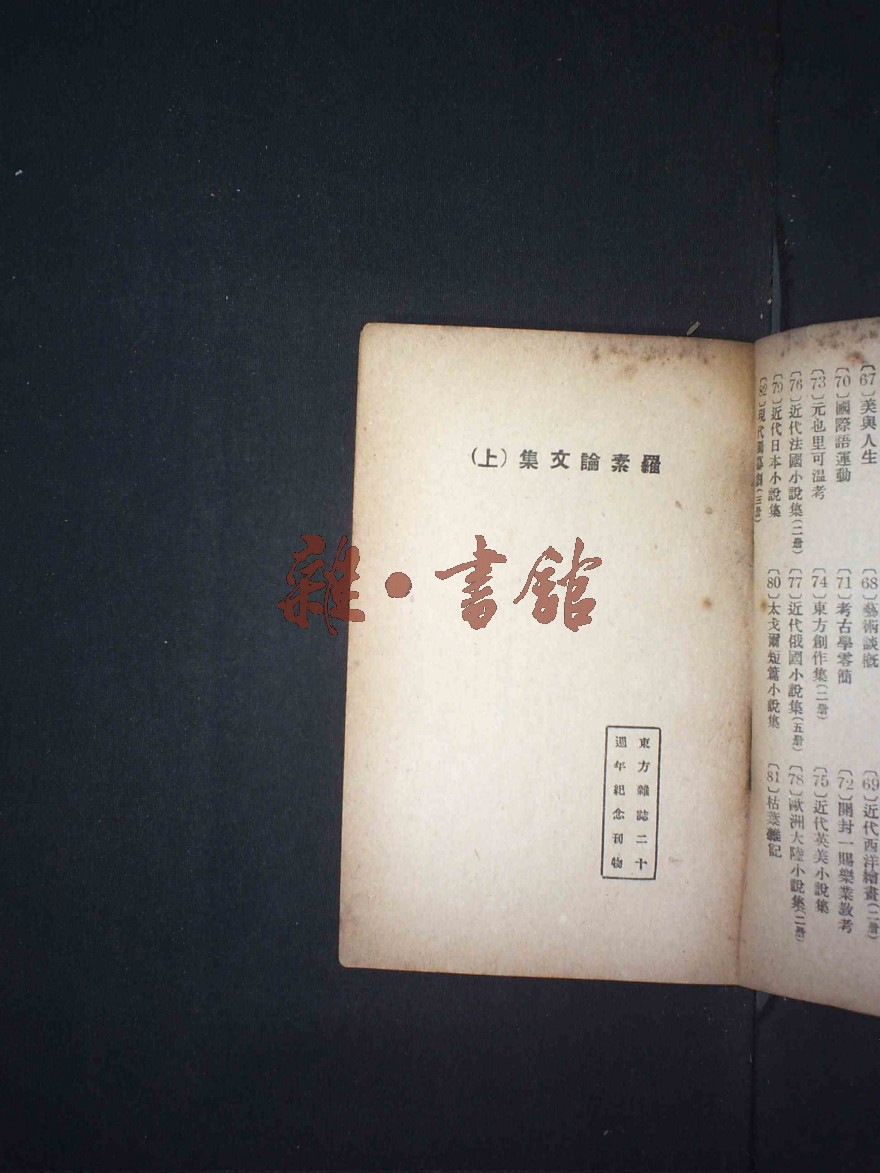 〔67〕美與人生 〔68〕藝術談概 〔69〕近代西洋繪畫(二册)
〔70〕國際語運動 〔71〕考古學零簡 〔72〕開封一賜樂業教考
〔73〕元也里可溫考 〔74〕東方創作集(二册) 〔75〕近代英美小說集
〔76〕近代法國小說集(二册) 〔77〕近代俄國小說集(五册) 〔78〕歐洲大陸小說集(二册)
〔79〕近代日本小說集 〔80〕太戈爾短篇小說集 〔81〕枯葉雜記
〔82〕現代獨幕劇(三册)
羅素論文集(上)
東方雜誌二十
週年紀念刊物
雜·書館